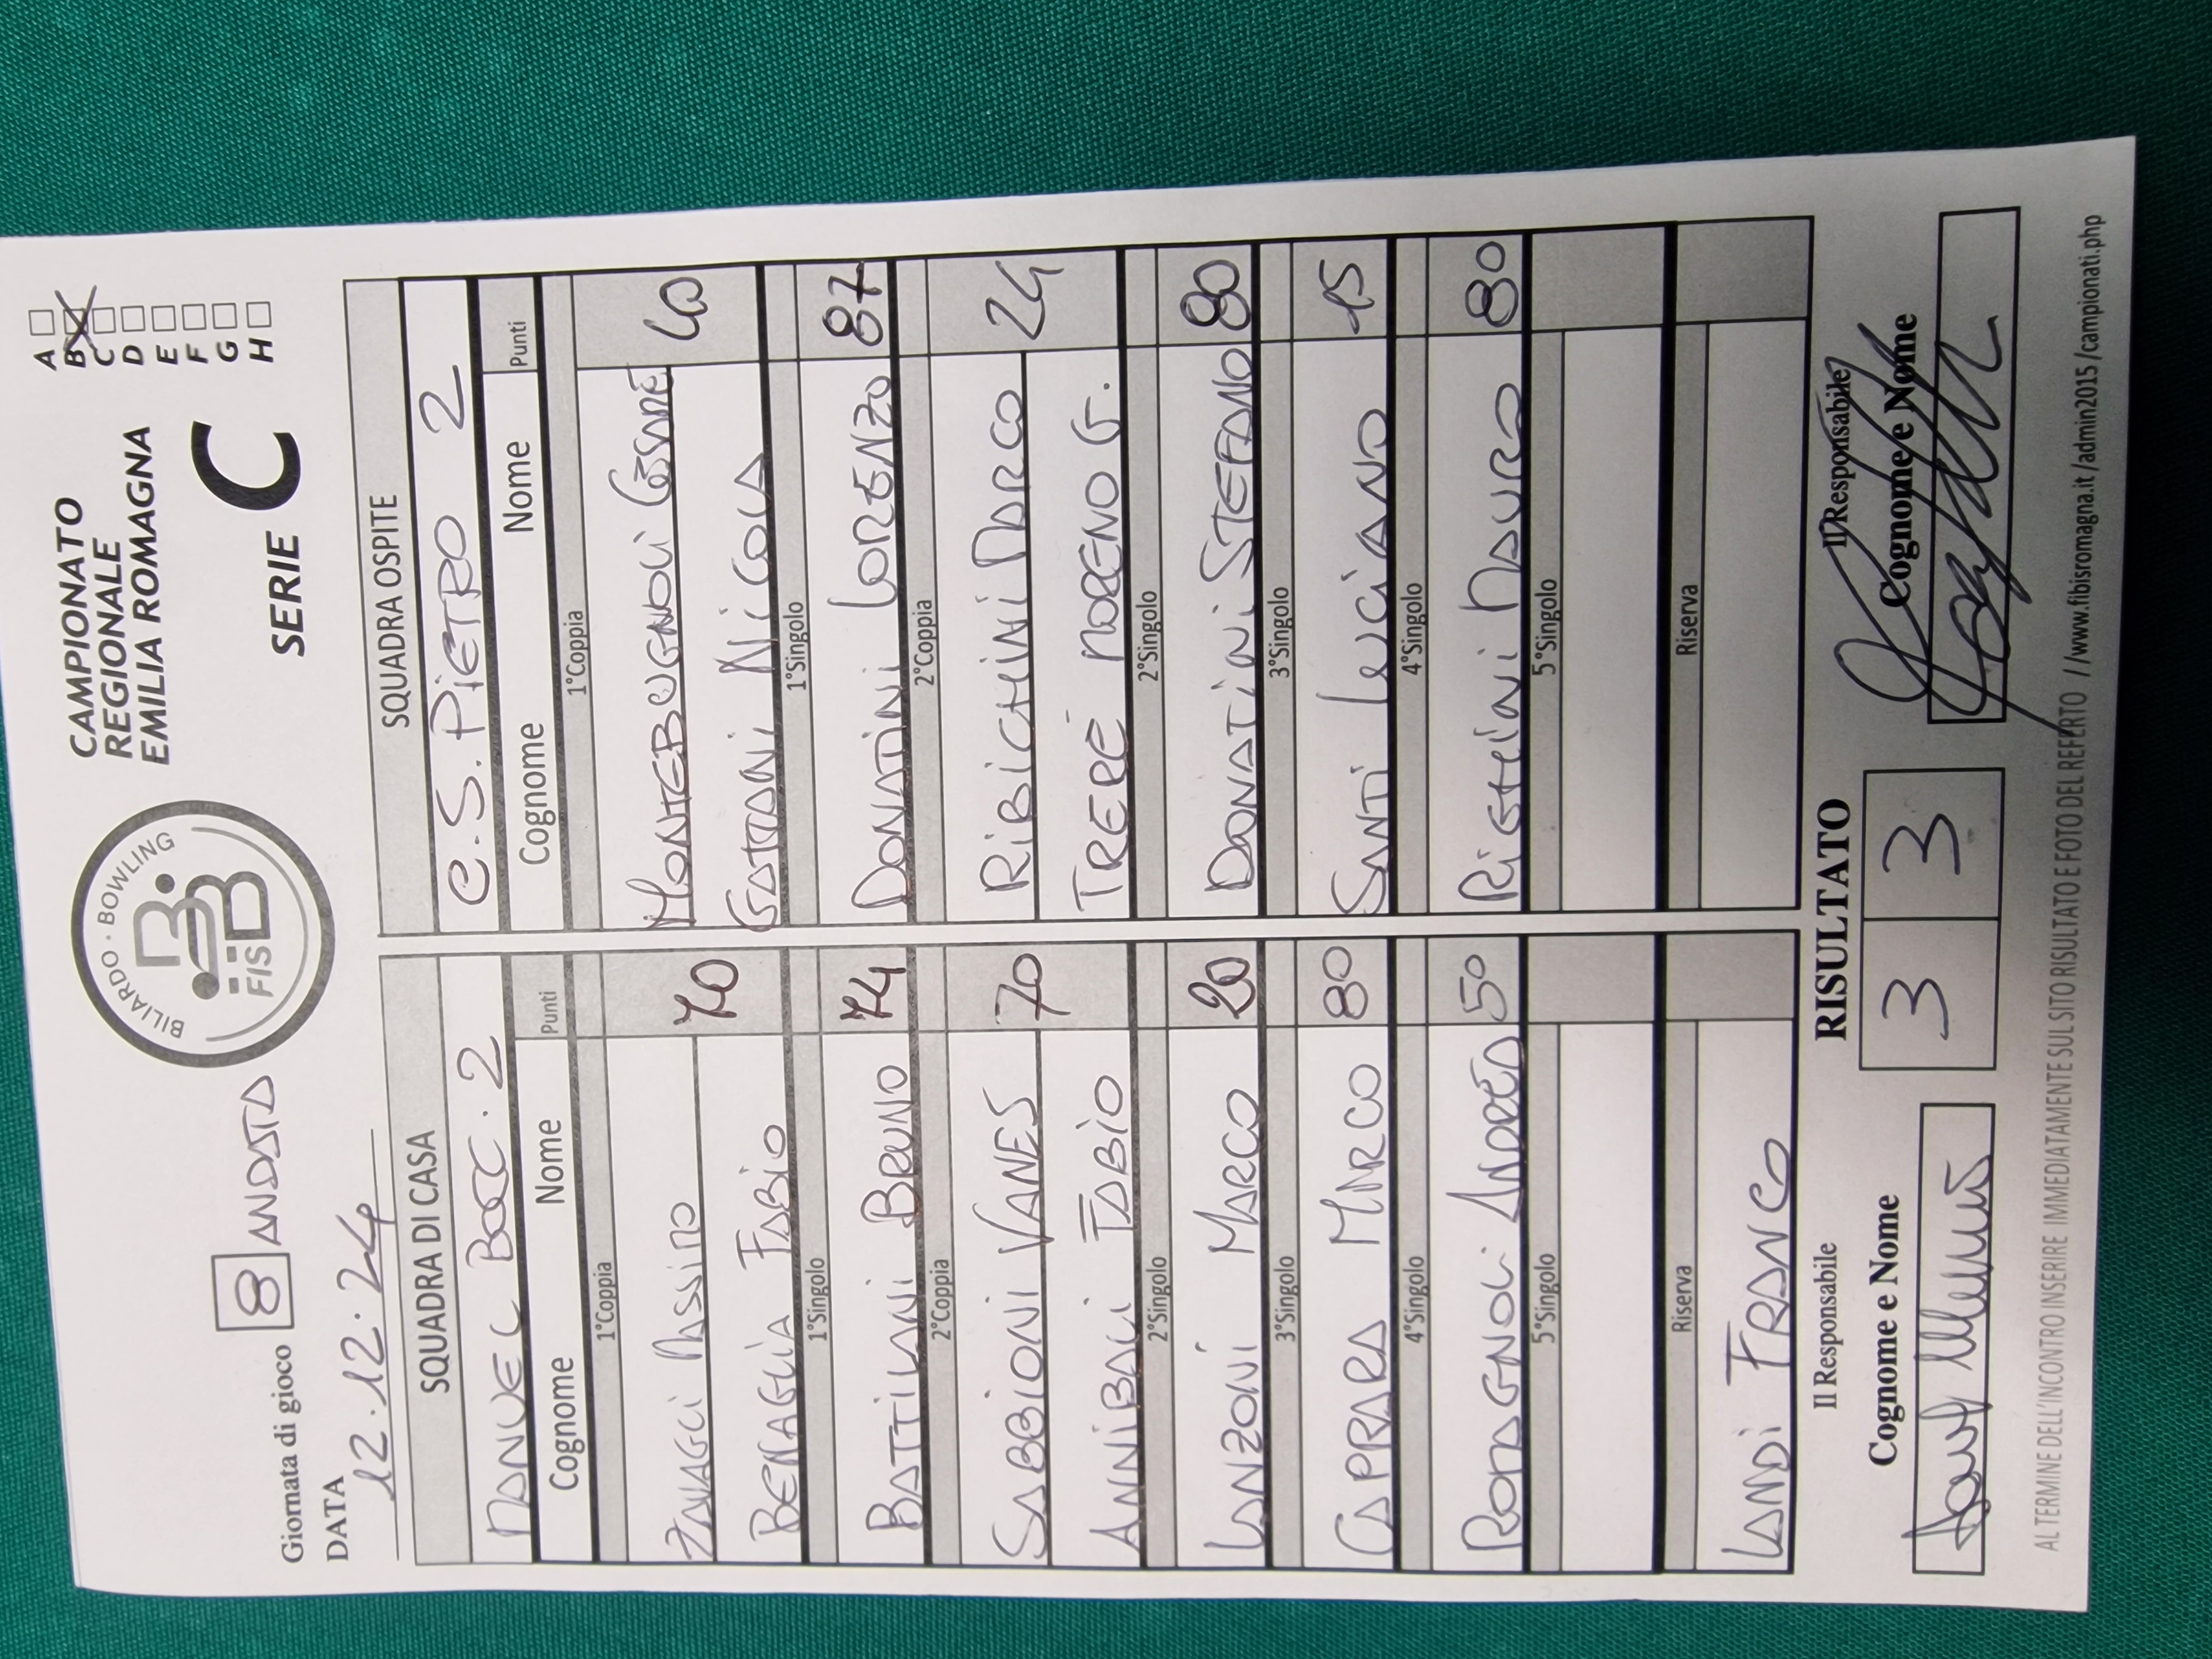 Giornata di gioco 8 ANDATA
DATA
12.12.24
BILIARDO · BOWLING
FISBB
CAMPIONATO
REGIONALE
EMILIA ROMAGNA
SERIE C
A
B
C
D
E
F
G
H
SQUADRA DI CASA
MANUEL BOC. 2
Cognome Nome Punti
1°Coppia
ZAVAGLI MASSIMO
70
BENAGLIA FABIO
1°Singolo
BATTILANI BRUNO 74
2°Coppia
SABBIONI VANES
70
ANNIBALI FABIO
2°Singolo
LANZONI MARCO 20
3°Singolo
CAPRARA MARCO 80
4°Singolo
ROMAGNOLI ANDREA 50
5°Singolo
Riserva
LANDI FRANCO
SQUADRA OSPITE
C.S. PIETRO 2
Cognome Nome Punti
1°Coppia
MONTEBUGNOLI CESARE
60
GATTONI NICOLA
1°Singolo
DONATINI LORENZO 87
2°Coppia
RIBICHINI MARCO
24
TRERÈ MORENO G.
2°Singolo
DONATINI STEFANO 80
3°Singolo
SANTI LUCIANO 15
4°Singolo
RIGHINI MAURO 80
5°Singolo
Riserva
Il Responsabile
Cognome e Nome
RISULTATO
3 3
Il Responsabile
Cognome e Nome
AL TERMINE DELL'INCONTRO INSERIRE IMMEDIATAMENTE SUL SITO RISULTATO E FOTO DEL REFERTO //www.fibisromagna.it/admin2015/campionati.php